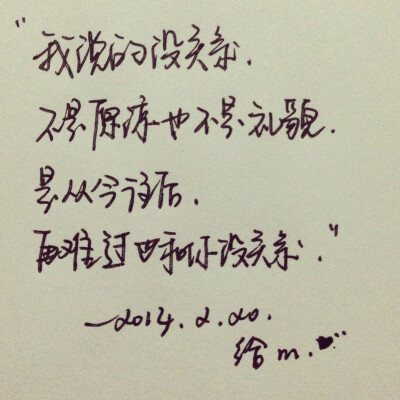 "我说的没关系.
不是原谅也不是礼貌.
是从今往后.
再难过也和你没关系."
—2014.2.20.
给m.♥